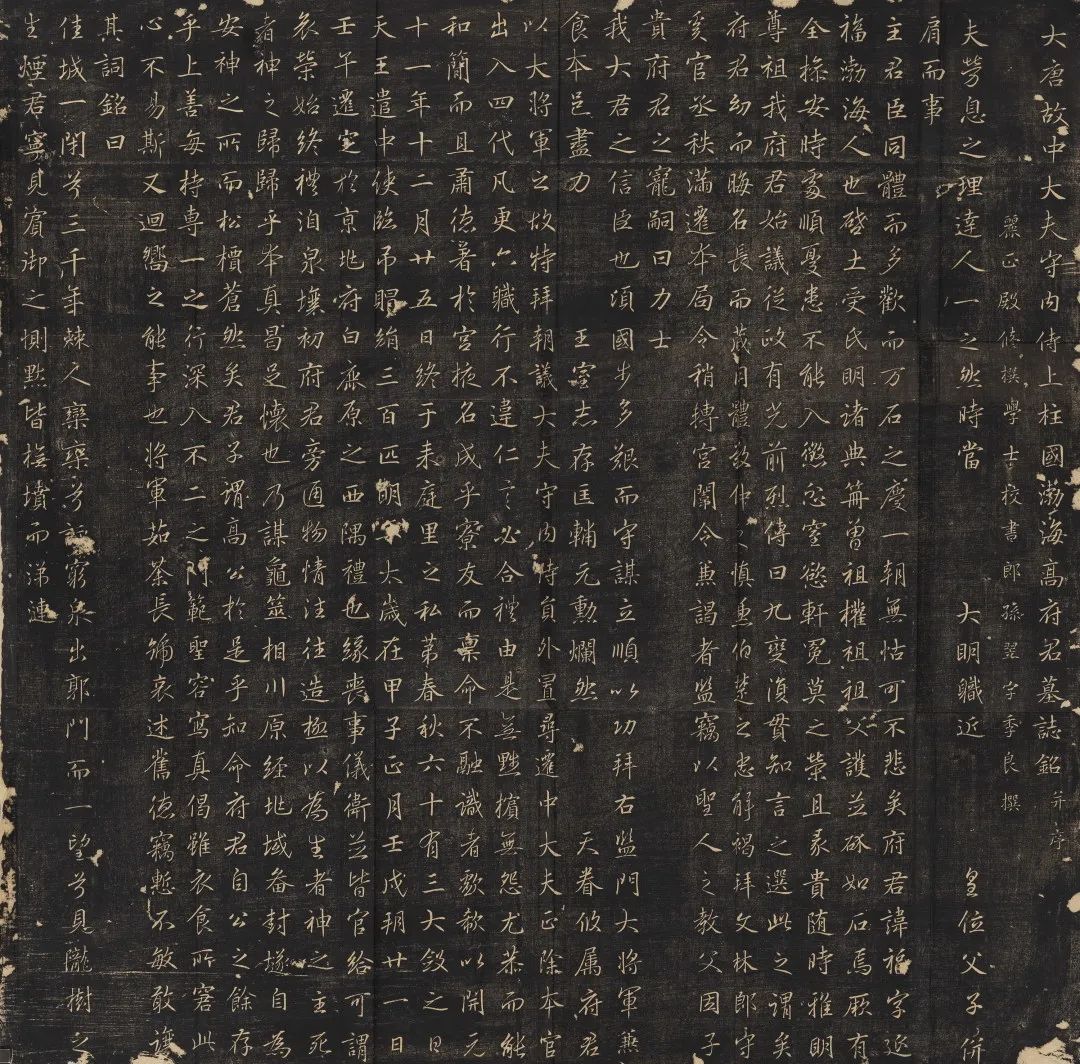 大唐故中大夫守内侍上柱國渤海高府君墓誌銘并序
麗正殿修撰學士校書郎孫翌字季良撰
夫勞息之理達人一之然時當 大明職近 皇位父子併
肩而事
主君臣同體而多歡而万石之慶一朝無怙可不悲矣府君諱福字延
福渤海人也啓土受氏明諸典冊曾祖權祖祖父護並砅如石焉厥有
全操安時處順憂患不能入懲忿窒慾軒冕莫之榮且彖貴随時雅明
尊祖我府君始議從政有光前烈傳曰九變復貫知言之選此之謂矣
府君幼而晦名長而藏用體敬仲之慎兼伯楚之忠解褐拜文林郎守
奚官丞秩滿遷本局令稍轉宮闈令兼謁者監竊以聖人之教父因子
貴府君之寵嗣曰力士
我大君之信臣也頃國步多艱而守謀立順以功拜右監門大將軍兼
食本邑盡力 王室志存匡輔元勳爛然 天眷攸属府君
以大將軍之故特拜朝議大夫守内侍員外置尋遷中大夫正除本官
出入四代凡更六職行不違仁言必合禮由是無黜擯無怨尤恭而能
和簡而且肅德著於宮掖名成乎寮友而稟命不融識者歔欷以開元
十一年十二月廿五日終于耒庭里之私第春秋六十有三大斂之日
天王遣中使臨吊賵絹三百匹明年大歲在甲子正月壬戌朔廿一日
壬午遷窆於京地府白鹿原之西隅禮也緣喪事儀衛並皆官給可謂
哀榮始終禮洎泉壤初府君旁通物情注往造極以為生者神之主死
者神之歸歸乎本真曷足懷也乃謀龜筮相川原經地域备封㙇自為
安神之所而松檟蒼然矣君子謂高公於是乎知命府君自公之餘存
乎上善每持專一之行深入不二之門範聖容寫真偈雖衣食所窘此
心不易斯又迴嚮之能事也將軍茹荼長號哀述舊德竊慙不敏敢讓
其詞銘曰
佳城一閇兮三千年棘人欒欒兮訴窮泉出郭門而一望兮見隴樹之
生煙君寮見賓御之惻默皆撫墳而涕漣